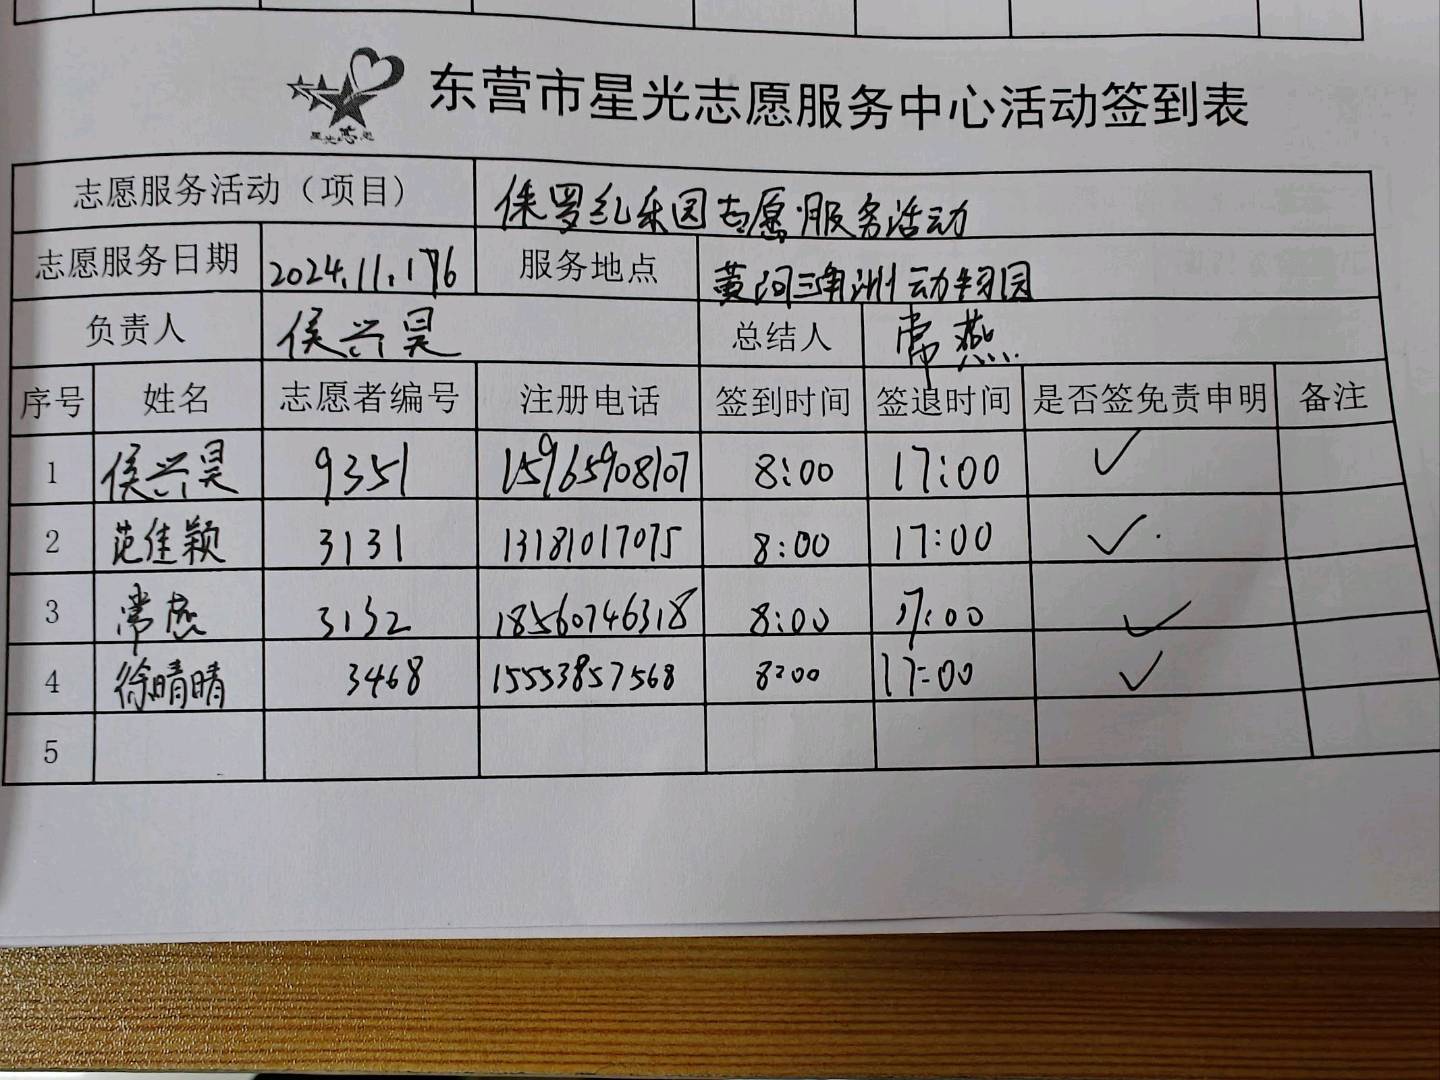 星光志愿
东营市星光志愿服务中心活动签到表
志愿服务活动（项目） 侏罗纪乐园志愿服务活动
志愿服务日期 2024.11.16 服务地点 黄河三角洲动物园
负责人 侯兴昊 总结人 常燕
序号 姓名 志愿者编号 注册电话 签到时间 签退时间 是否签免责申明 备注
1 侯兴昊 9351 15965908107 8:00 17:00 ✓
2 范佳颖 3131 13181017075 8:00 17:00 ✓
3 常燕 3132 18560746318 8:00 17:00 ✓
4 徐晴晴 3468 15553857568 8:00 17:00 ✓
5